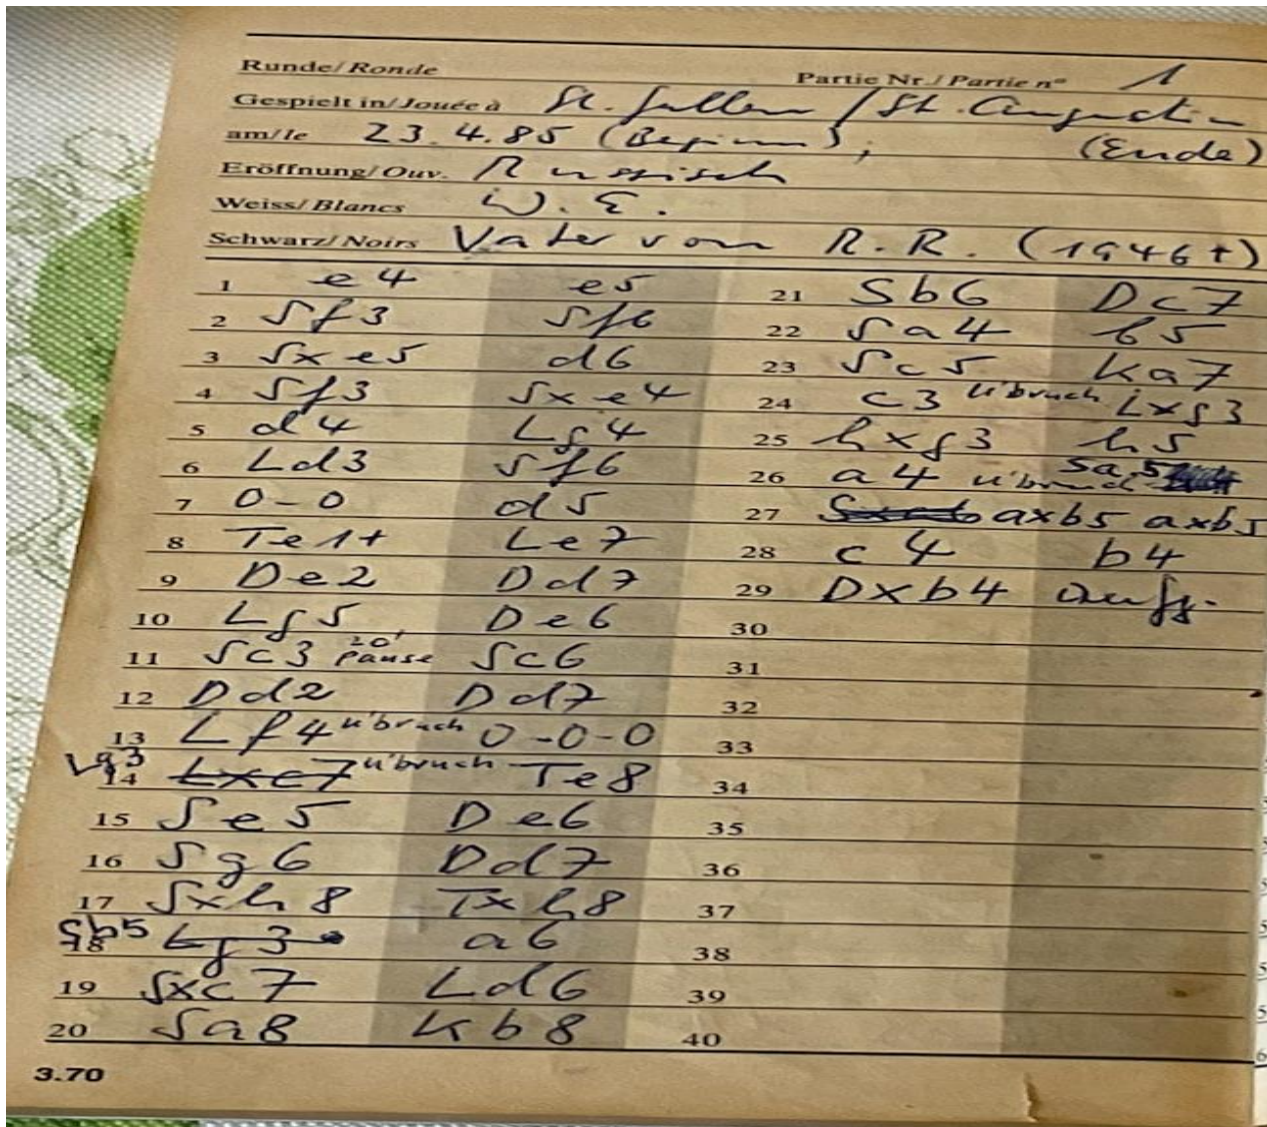 Runde/Ronde Partie Nr./Partie n° 1
Gespielt in/Jouée à St. Gallen / St. Augustin
am/le 23.4.85 (Beginn); (Ende)
Eröffnung/Ouv. Russisch
Weiss/Blancs W. E.
Schwarz/Noirs Vater von R. R. (1946+)
1 e4 e5
2 Sf3 Sf6
3 Sxe5 d6
4 Sf3 Sxe4
5 d4 Lg4
6 Ld3 Sf6
7 0-0 d5
8 Te1+ Le7
9 De2 Dd7
10 Lg5 De6
11 Sc3 20' Pause Sc6
12 Dd2 Dd7
13 Lf4 u'bruch 0-0-0
14 Lg3 Lxc7 u'bruch Te8
15 Se5 De6
16 Sg6 Dd7
17 Sxh8 Txh8
18 Sb5 Lg3 a6
19 Sxc7 Ld6
20 Sa8 Kb8
21 Sb6 Dc7
22 Sa4 b5
23 Sc5 Ka7
24 c3 u'bruch Lxg3
25 hxg3 h5
26 a4 u'bruch Sa5
27 axb5 axb5
28 c4 b4
29 Dxb4 Aufg.
30
31
32
33
34
35
36
37
38
39
40
3.70